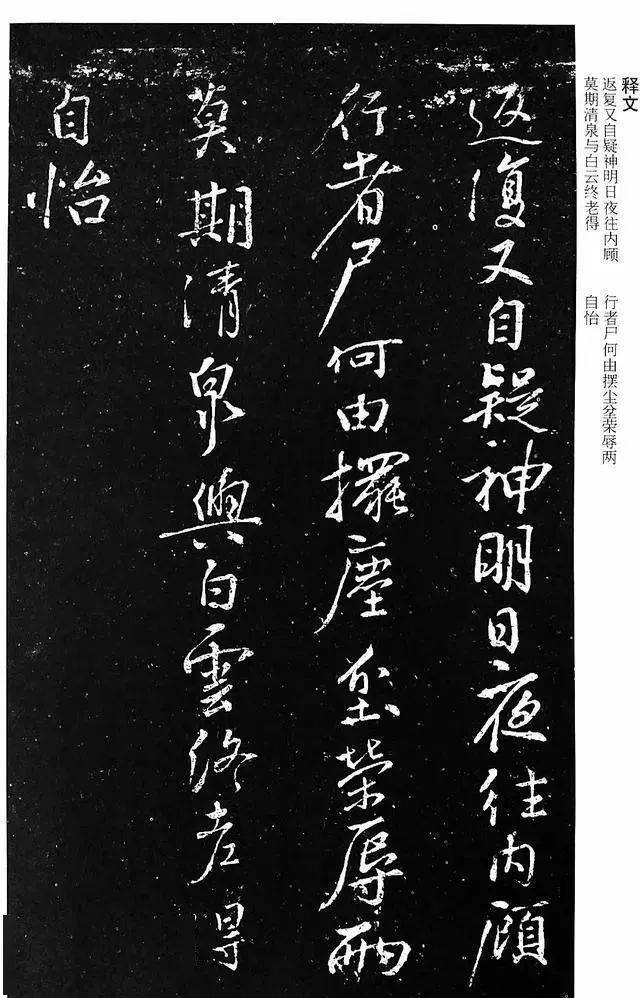 返復又自疑神明日夜往内顧
行者尸何由擺塵坌榮辱兩
莫期清泉與白雲終老得
自怡
释文
返复又自疑神明日夜往内顾
行者尸何由摆尘坌荣辱两
莫期清泉与白云终老得
自怡